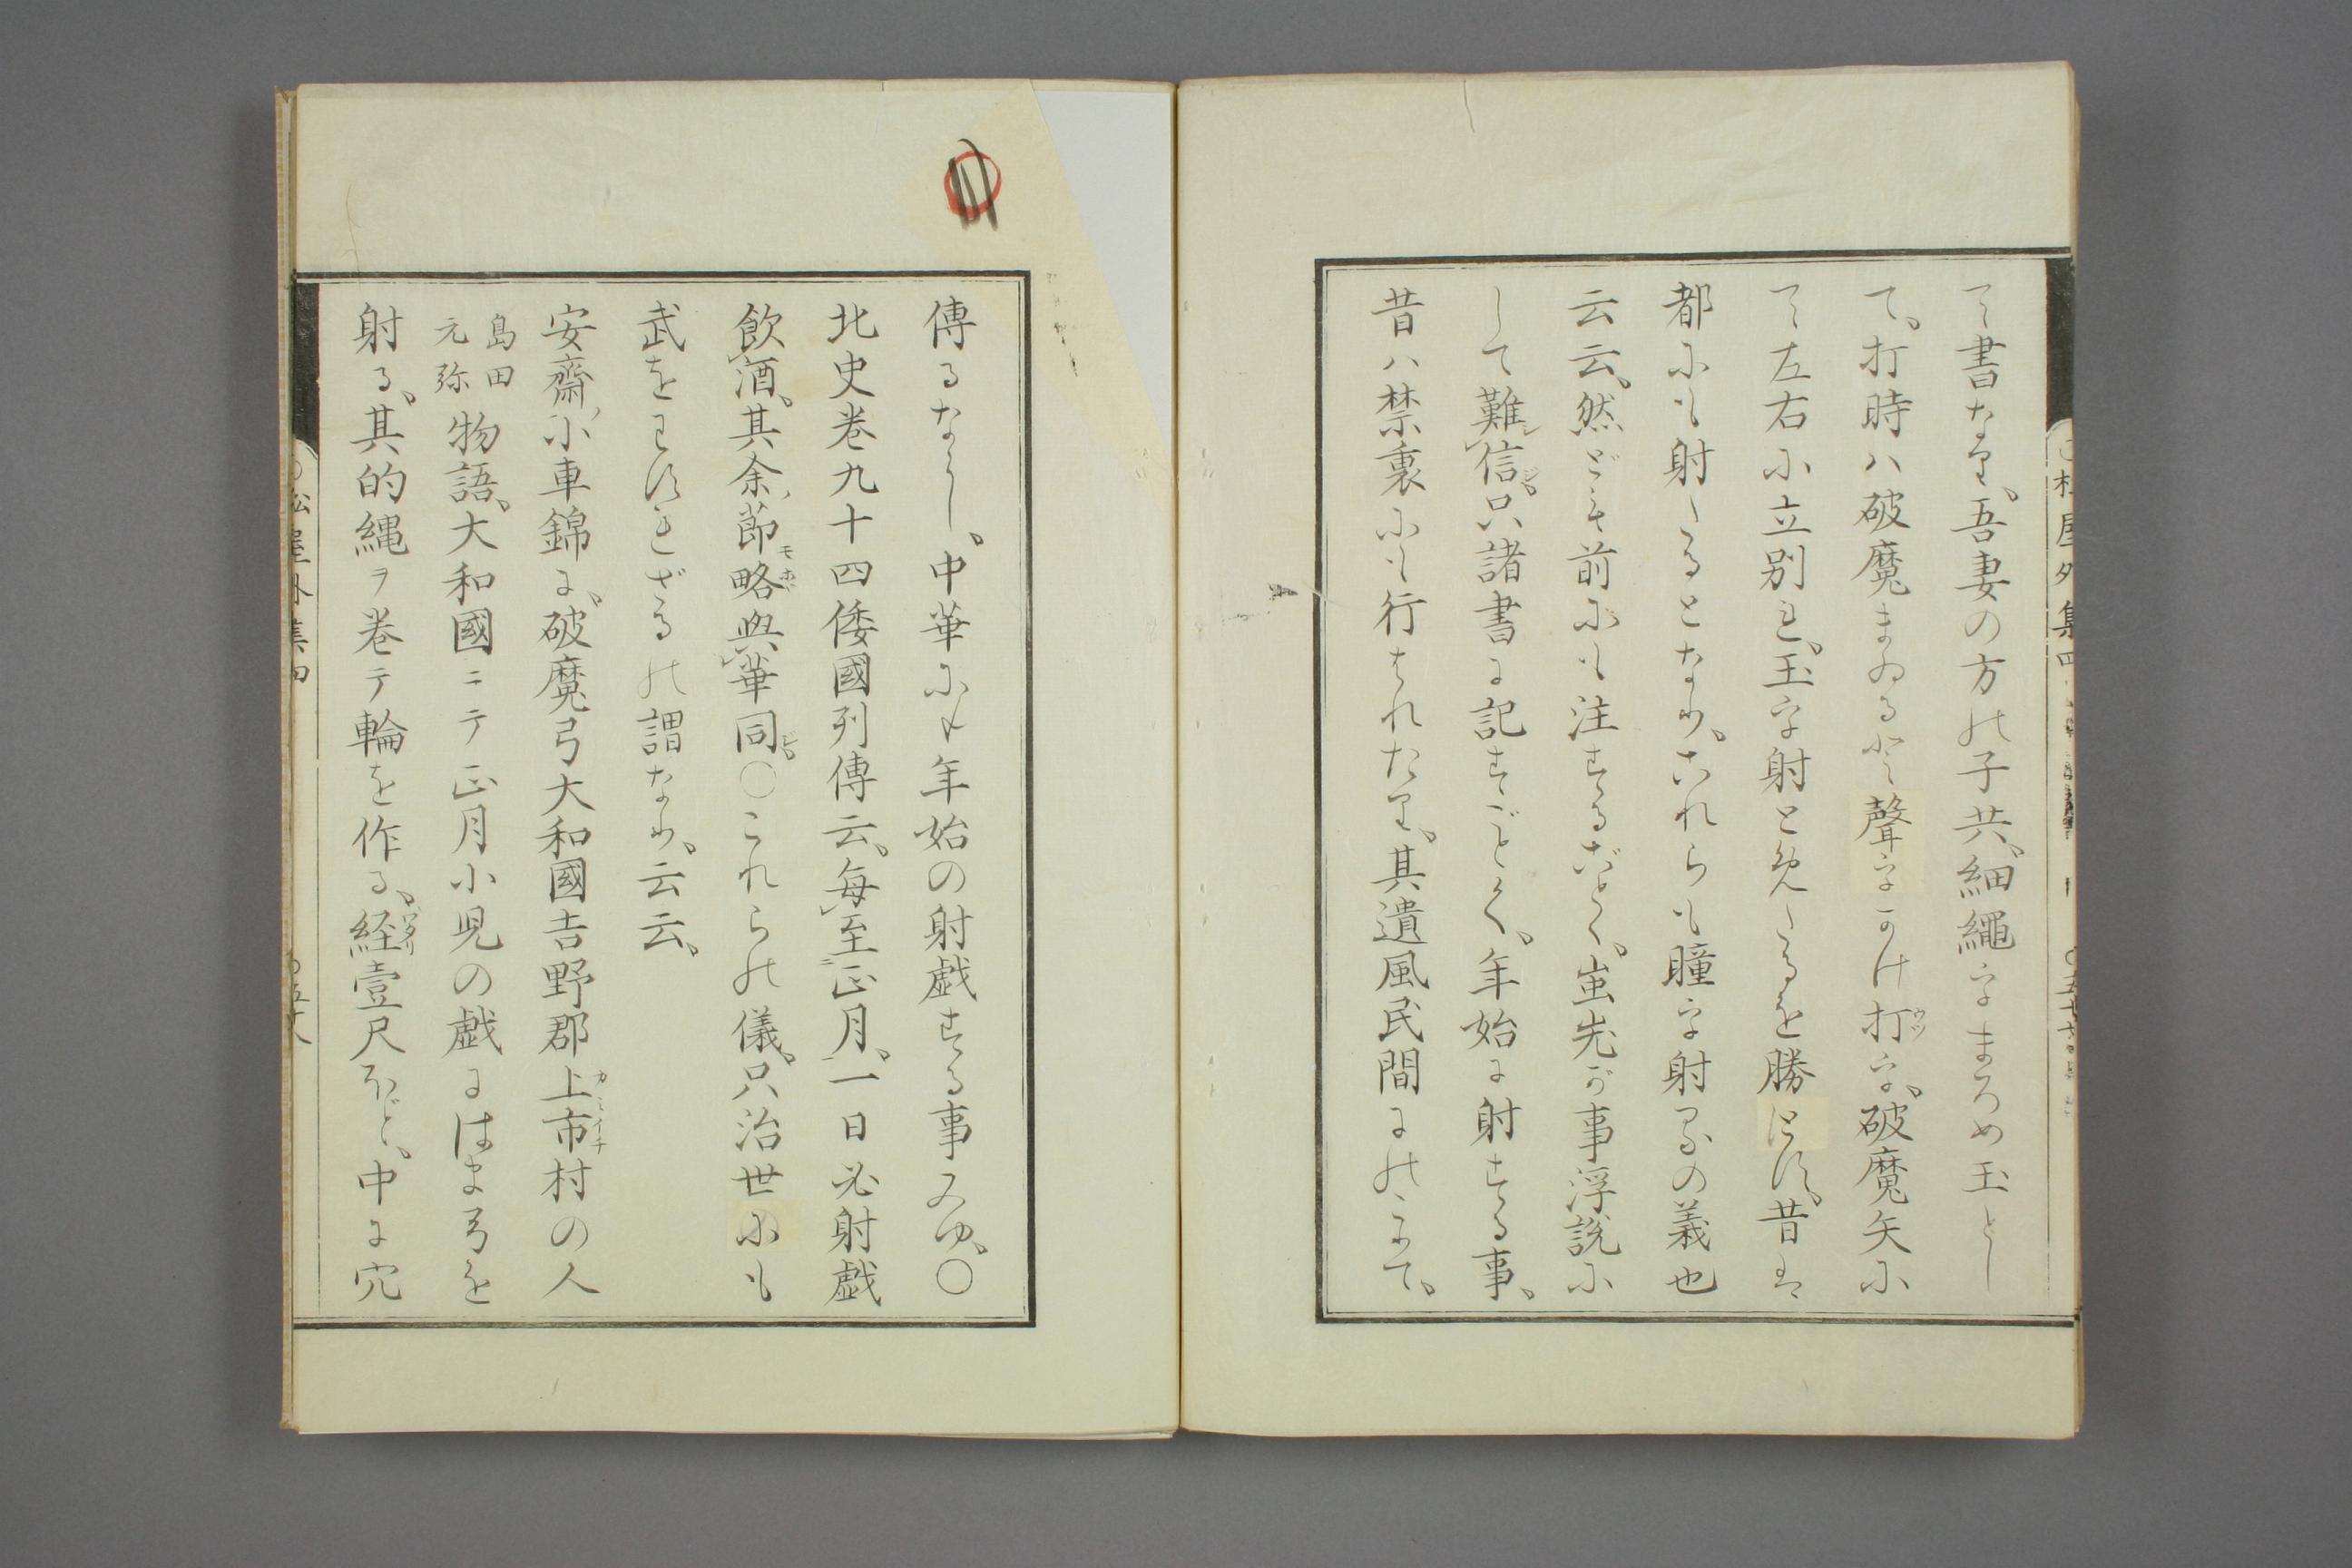 て書なり、吾妻の方の子共、細縄をまろめ玉とし
て、打時ハ破魔まゐると、聲をかけ打を、破魔矢に
て左右に立別れ、玉を射とめたるを勝とす、昔は
都にも射たるとなり、これらも瞳を射るの義也
云云、然ども前にも注するごとく、蚩尤が事浮説に
して難信、只諸書に記すごとく、年始に射する事、
昔ハ禁裏にも行はれたり、其遺風民間にのこりて、
傳るなるべし、中華にも年始の射戯する事みゆ、〇
北史巻九十四倭國列傳云、毎至正月、一日必射戯
飲酒、其余節略與華同〇これらの儀、只治世にも
武をわすれざるの謂なり、云云、
安齋小車錦に、破魔弓大和國吉野郡上市村の人
島田元弥物語、大和國ニテ正月小児の戯にはま弓を
射る、其的縄ヲ巻テ輪を作る、経壹尺ほど、中に穴